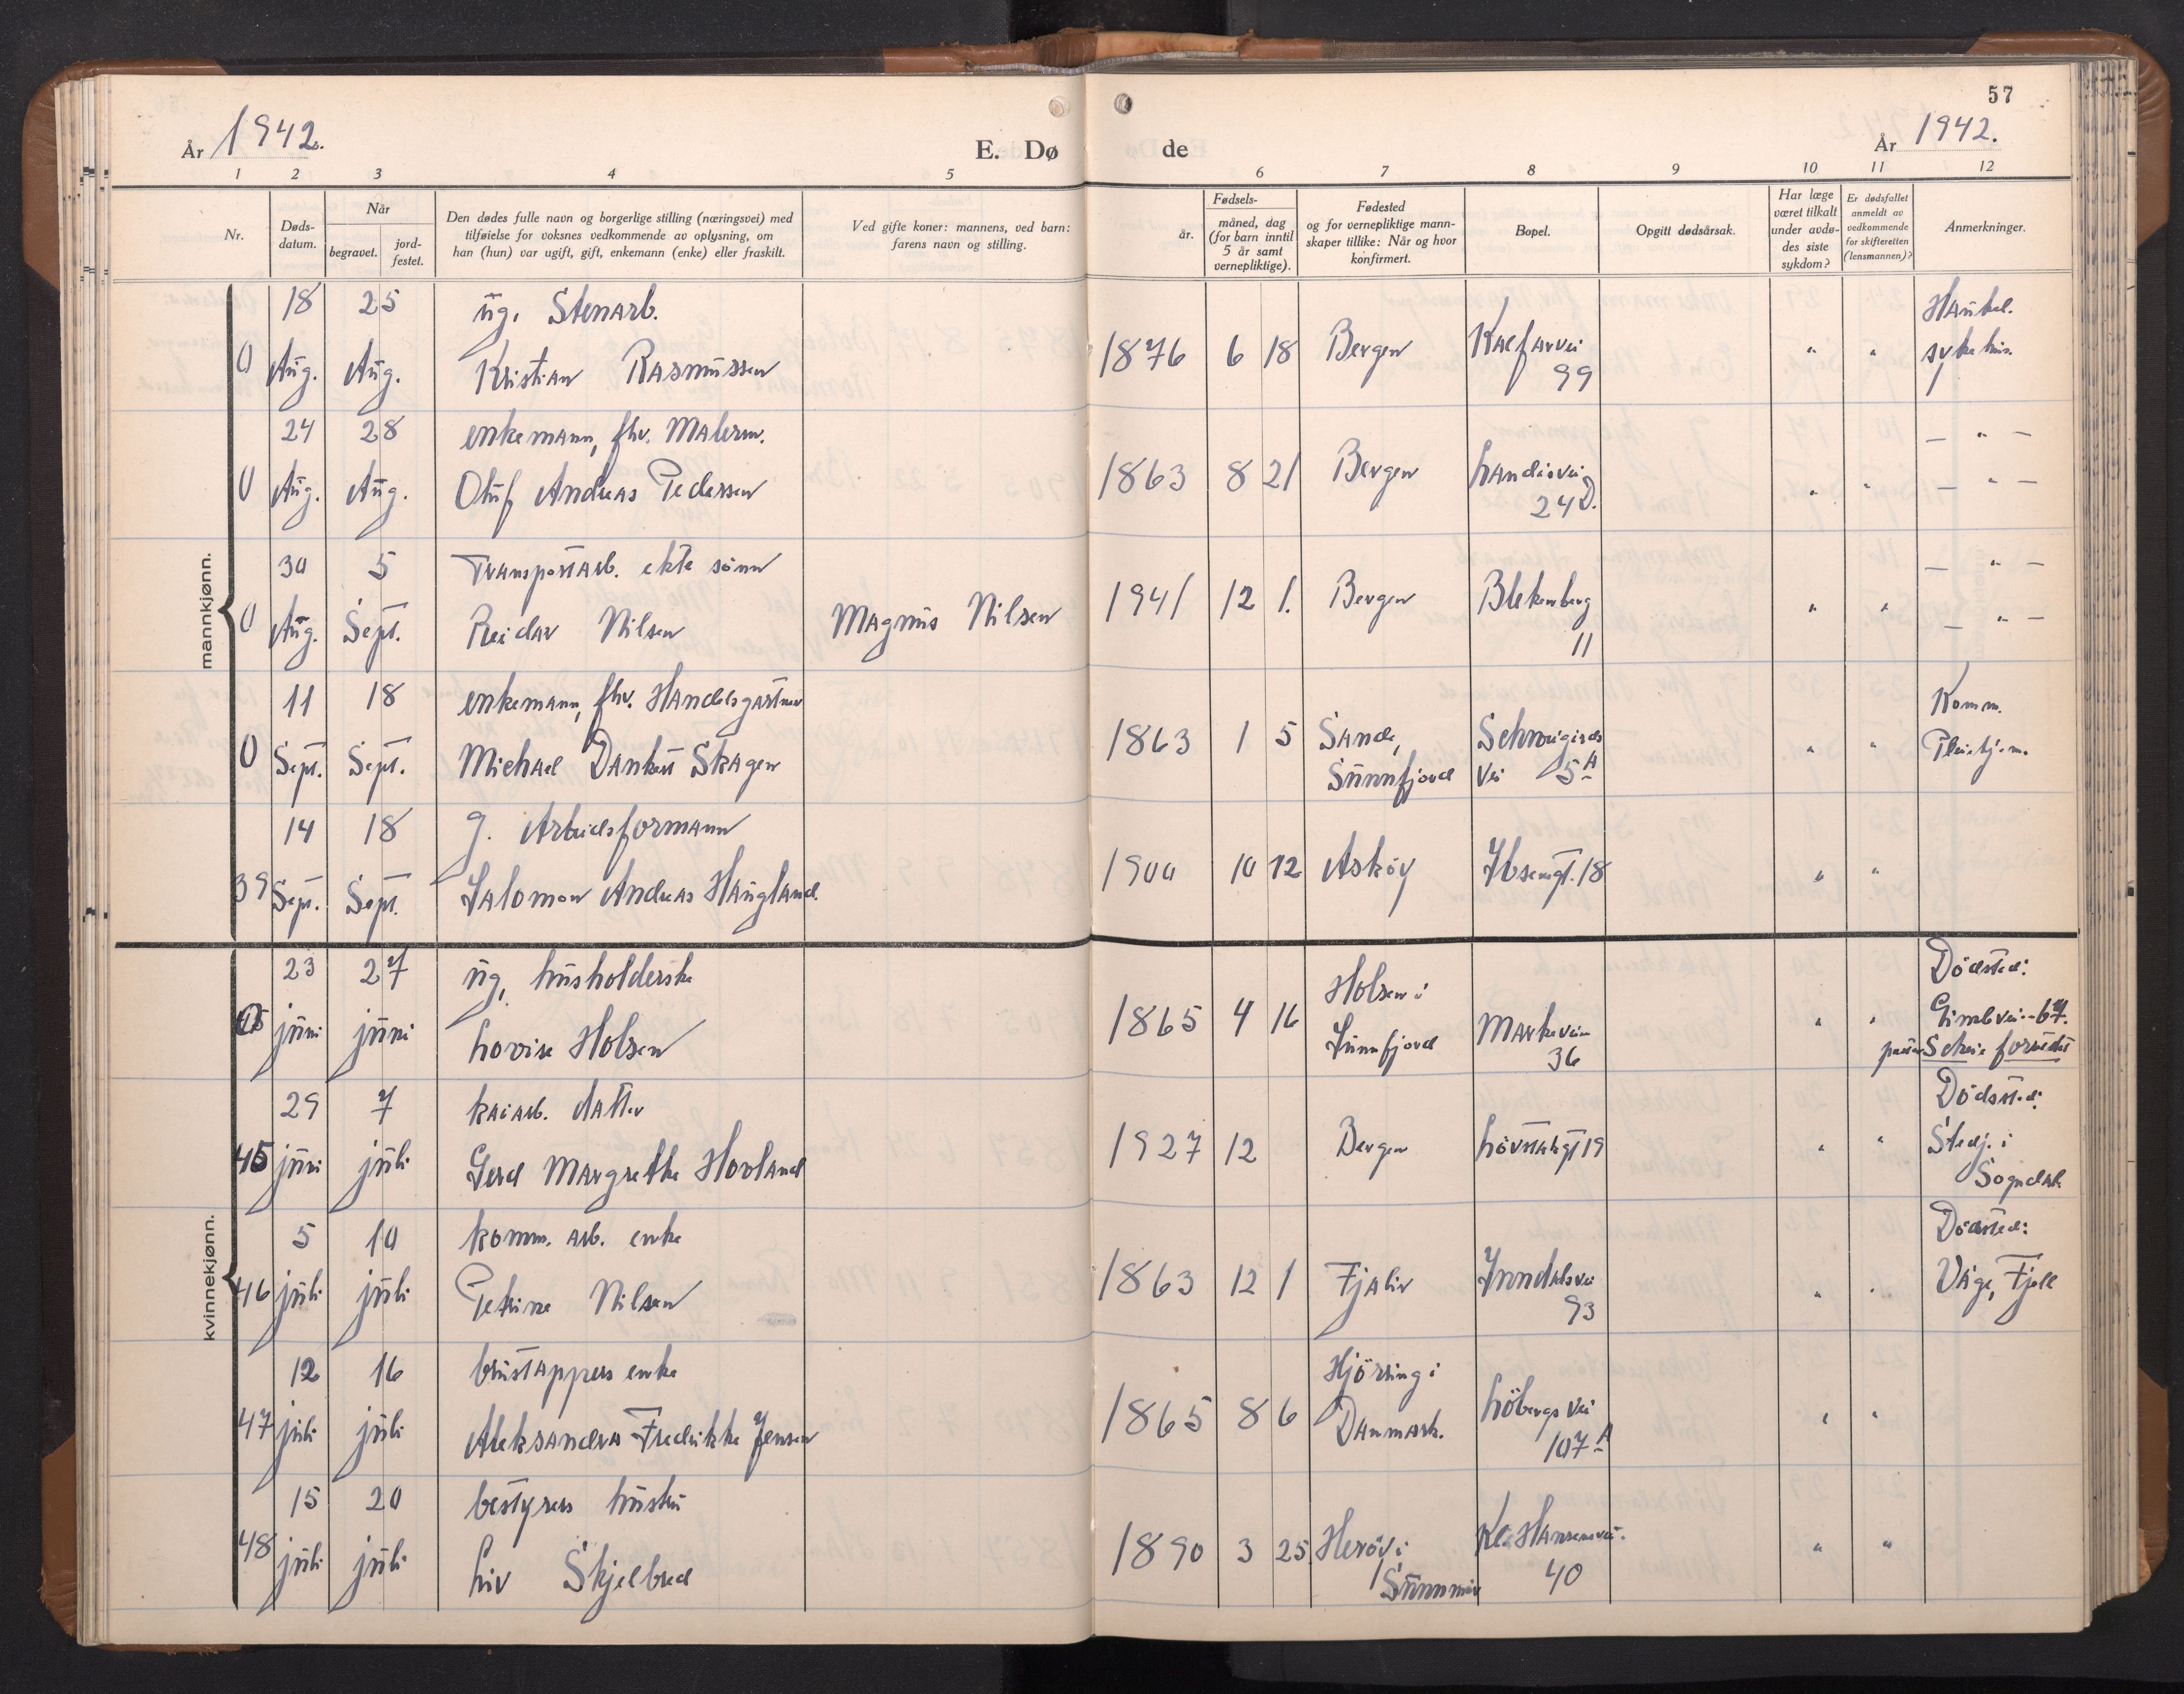 57
År 1942. E. Dø de År 1942.
1 2 3 4 5 6 7 8 9 10 11 12
Nr.
Døds-
datum.
Når
begravet.
jord-
festet.
Den dødes fulle navn og borgerlige stilling (næringsvei) med
tilføielse for voksnes vedkommende av oplysning, om
han (hun) var ugift, gift, enkemann (enke) eller fraskilt.
Ved gifte koner: mannens, ved barn:
farens navn og stilling.
år.
Fødsels-
måned, dag
(for barn inntil
5 år samt
vernepliktige).
Fødested
og for vernepliktige mann-
skaper tillike: Når og hvor
konfirmert.
Bopel.
Opgitt dødsårsak.
Har læge
været tilkalt
under avdø-
des siste
sykdom?
Er dødsfallet
anmeldt av
vedkommende
for skifteretten
(lensmannen)?
Anmerkninger.
mannkjønn.
18 25 ug. Stenarb. Haukel.
0 Aug. Aug. Kristian Rasmussen 1876 6 18 Bergen Kalfarvei " " sykehus.
99
24 28 enkemann, fhv. Malerm. — " —
0 Aug. Aug. Oluf Andreas Pedersen 1863 8 21 Bergen Landåsvei " " — " —
24 D.
30 5 Transportarb. ekte sønn — " —
0 Aug. Sept. Reidar Nilsen Magnus Nilsen 1941 12 1. Bergen Blekenberg " " — " —
11
11 18 enkemann, fhv. Handelsgartner Komm.
0 Sept. Sept. Michael Dankert Skagen 1863 1 5 Sande, " " Pleiehjem.
Sunnfjord vei 5A
14 18 g. Arbeidsformann
39 Sept. Sept. Salomon Andreas Haugland 1900 10 12 Askøy Ibsensgt. 18 " "
kvinnekjønn.
23 27 ug. husholderske Holsen i Dødsted:
juni juni Lovise Holsen 1865 4 16 Sunnfjord Markeveien " " Gimlevei 67.
36 Scheie forrettet
29 7 kaiarb. datter Dødsted:
45 juni juli Gerd Margrethe Hovland 1927 12 Bergen Løvstakgt 19 " " Stedj. i
Sogndal.
5 10 komm. arb. enke Dødsted:
46 juli juli Petrine Nilsen 1863 12 1 Fjaler Inndalsvei " " Våge, Fjell
93
12 16 brustappers enke Hjørring i
47 juli juli Aleksandra Fredrikke Jensen 1865 8 6 Danmark. Løbergsvei " "
107A
15 20 bestyrers hustru
48 juli juli Liv Skjelbred 1890 3 25 Herøy i Kl. Hansensvei. " "
Sunnmør 40